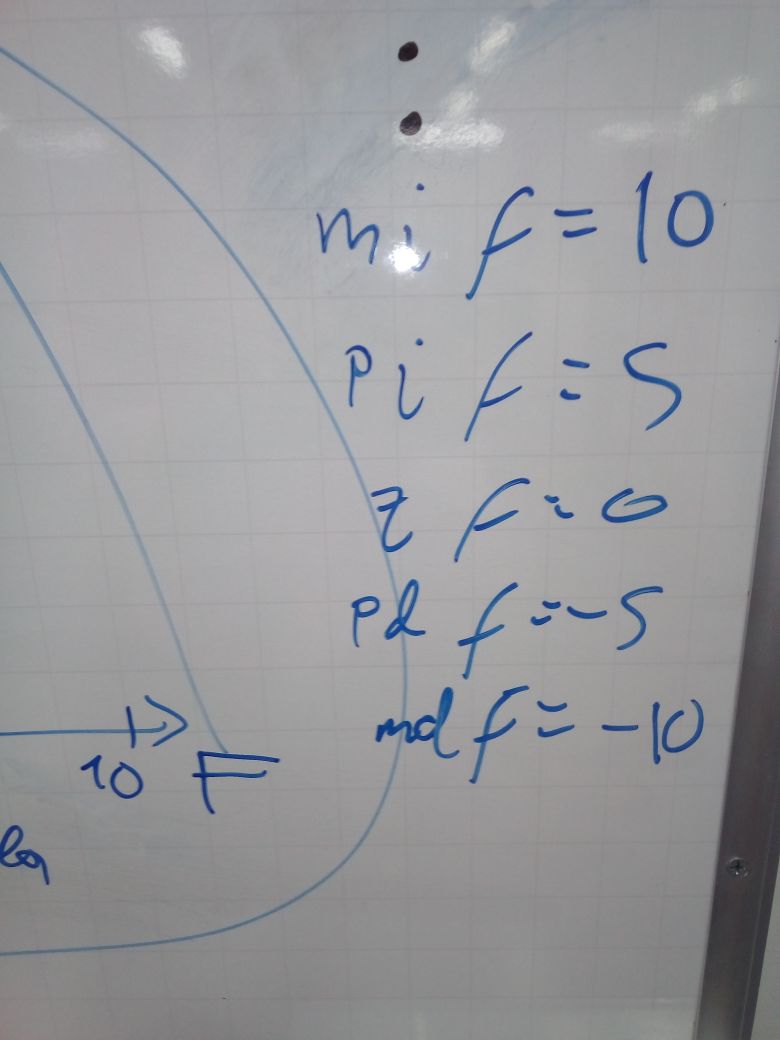 mi f = 10
pi f = 5
z f = 0
pd f = -5
md f = -10
10 F